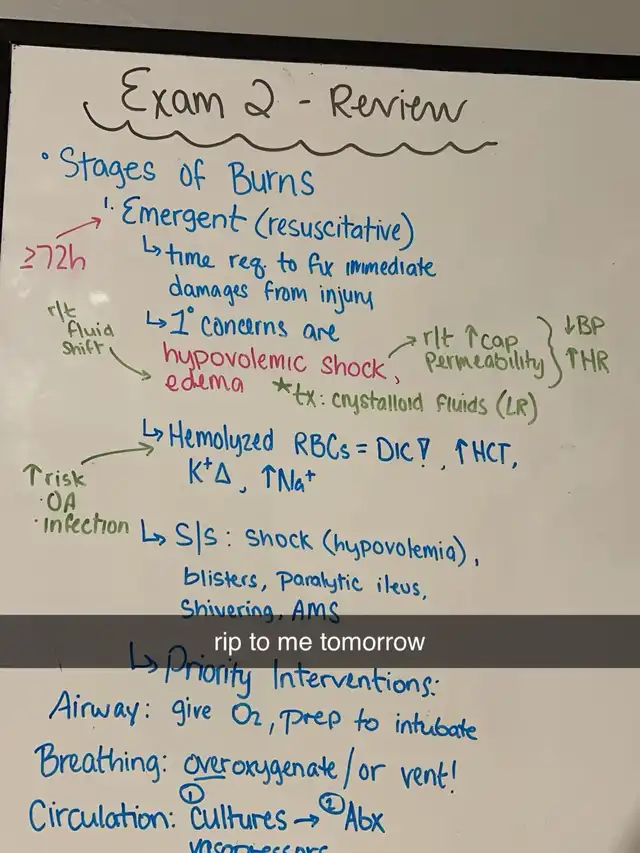 Exam 2 - Review
• Stages of Burns
1. Emergent (resuscitative)
≥72h
↳ time req. to fix immediate
damages from injury
↳ 1° concerns are
hypovolemic shock,
edema
r/t
fluid
shift
r/t ↑cap
permeability
↓BP
↑HR
*tx: crystalloid fluids (LR)
↳ Hemolyzed RBCs = DIC!, ↑HCT,
K+Δ, ↑Na+
↑risk
·OA
·infection
↳ S/S: shock (hypovolemia),
blisters, paralytic ileus,
shivering, AMS
rip to me tomorrow
↳ Priority Interventions:
Airway: give O2, prep to intubate
Breathing: overoxygenate/or vent!
Circulation: ① cultures → ② Abx
vasopressors